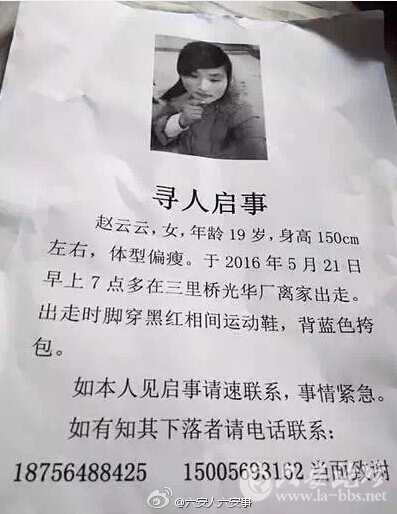 寻人启事
赵云云，女，年龄 19 岁，身高 150cm
左右，体型偏瘦。于 2016 年 5 月 21 日
早上 7 点多在三里桥光华厂离家出走。
出走时脚穿黑红相间运动鞋，背蓝色挎
包。
如本人见启事请速联系，事情紧急。
如有知其下落者请电话联系：
18756488425 15005693162 当面致谢
@六安人六安事
www.la-bbs.net